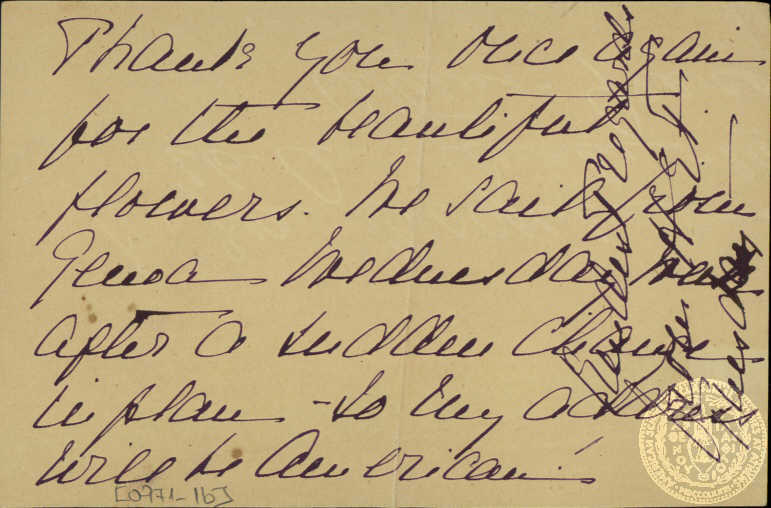 Thank you once again
for the beautiful
flowers. We sail from
Genoa Wednesday
after a sudden change
in plan - so my address
will be American
Kindest regards
Tuesday
[0971-16]